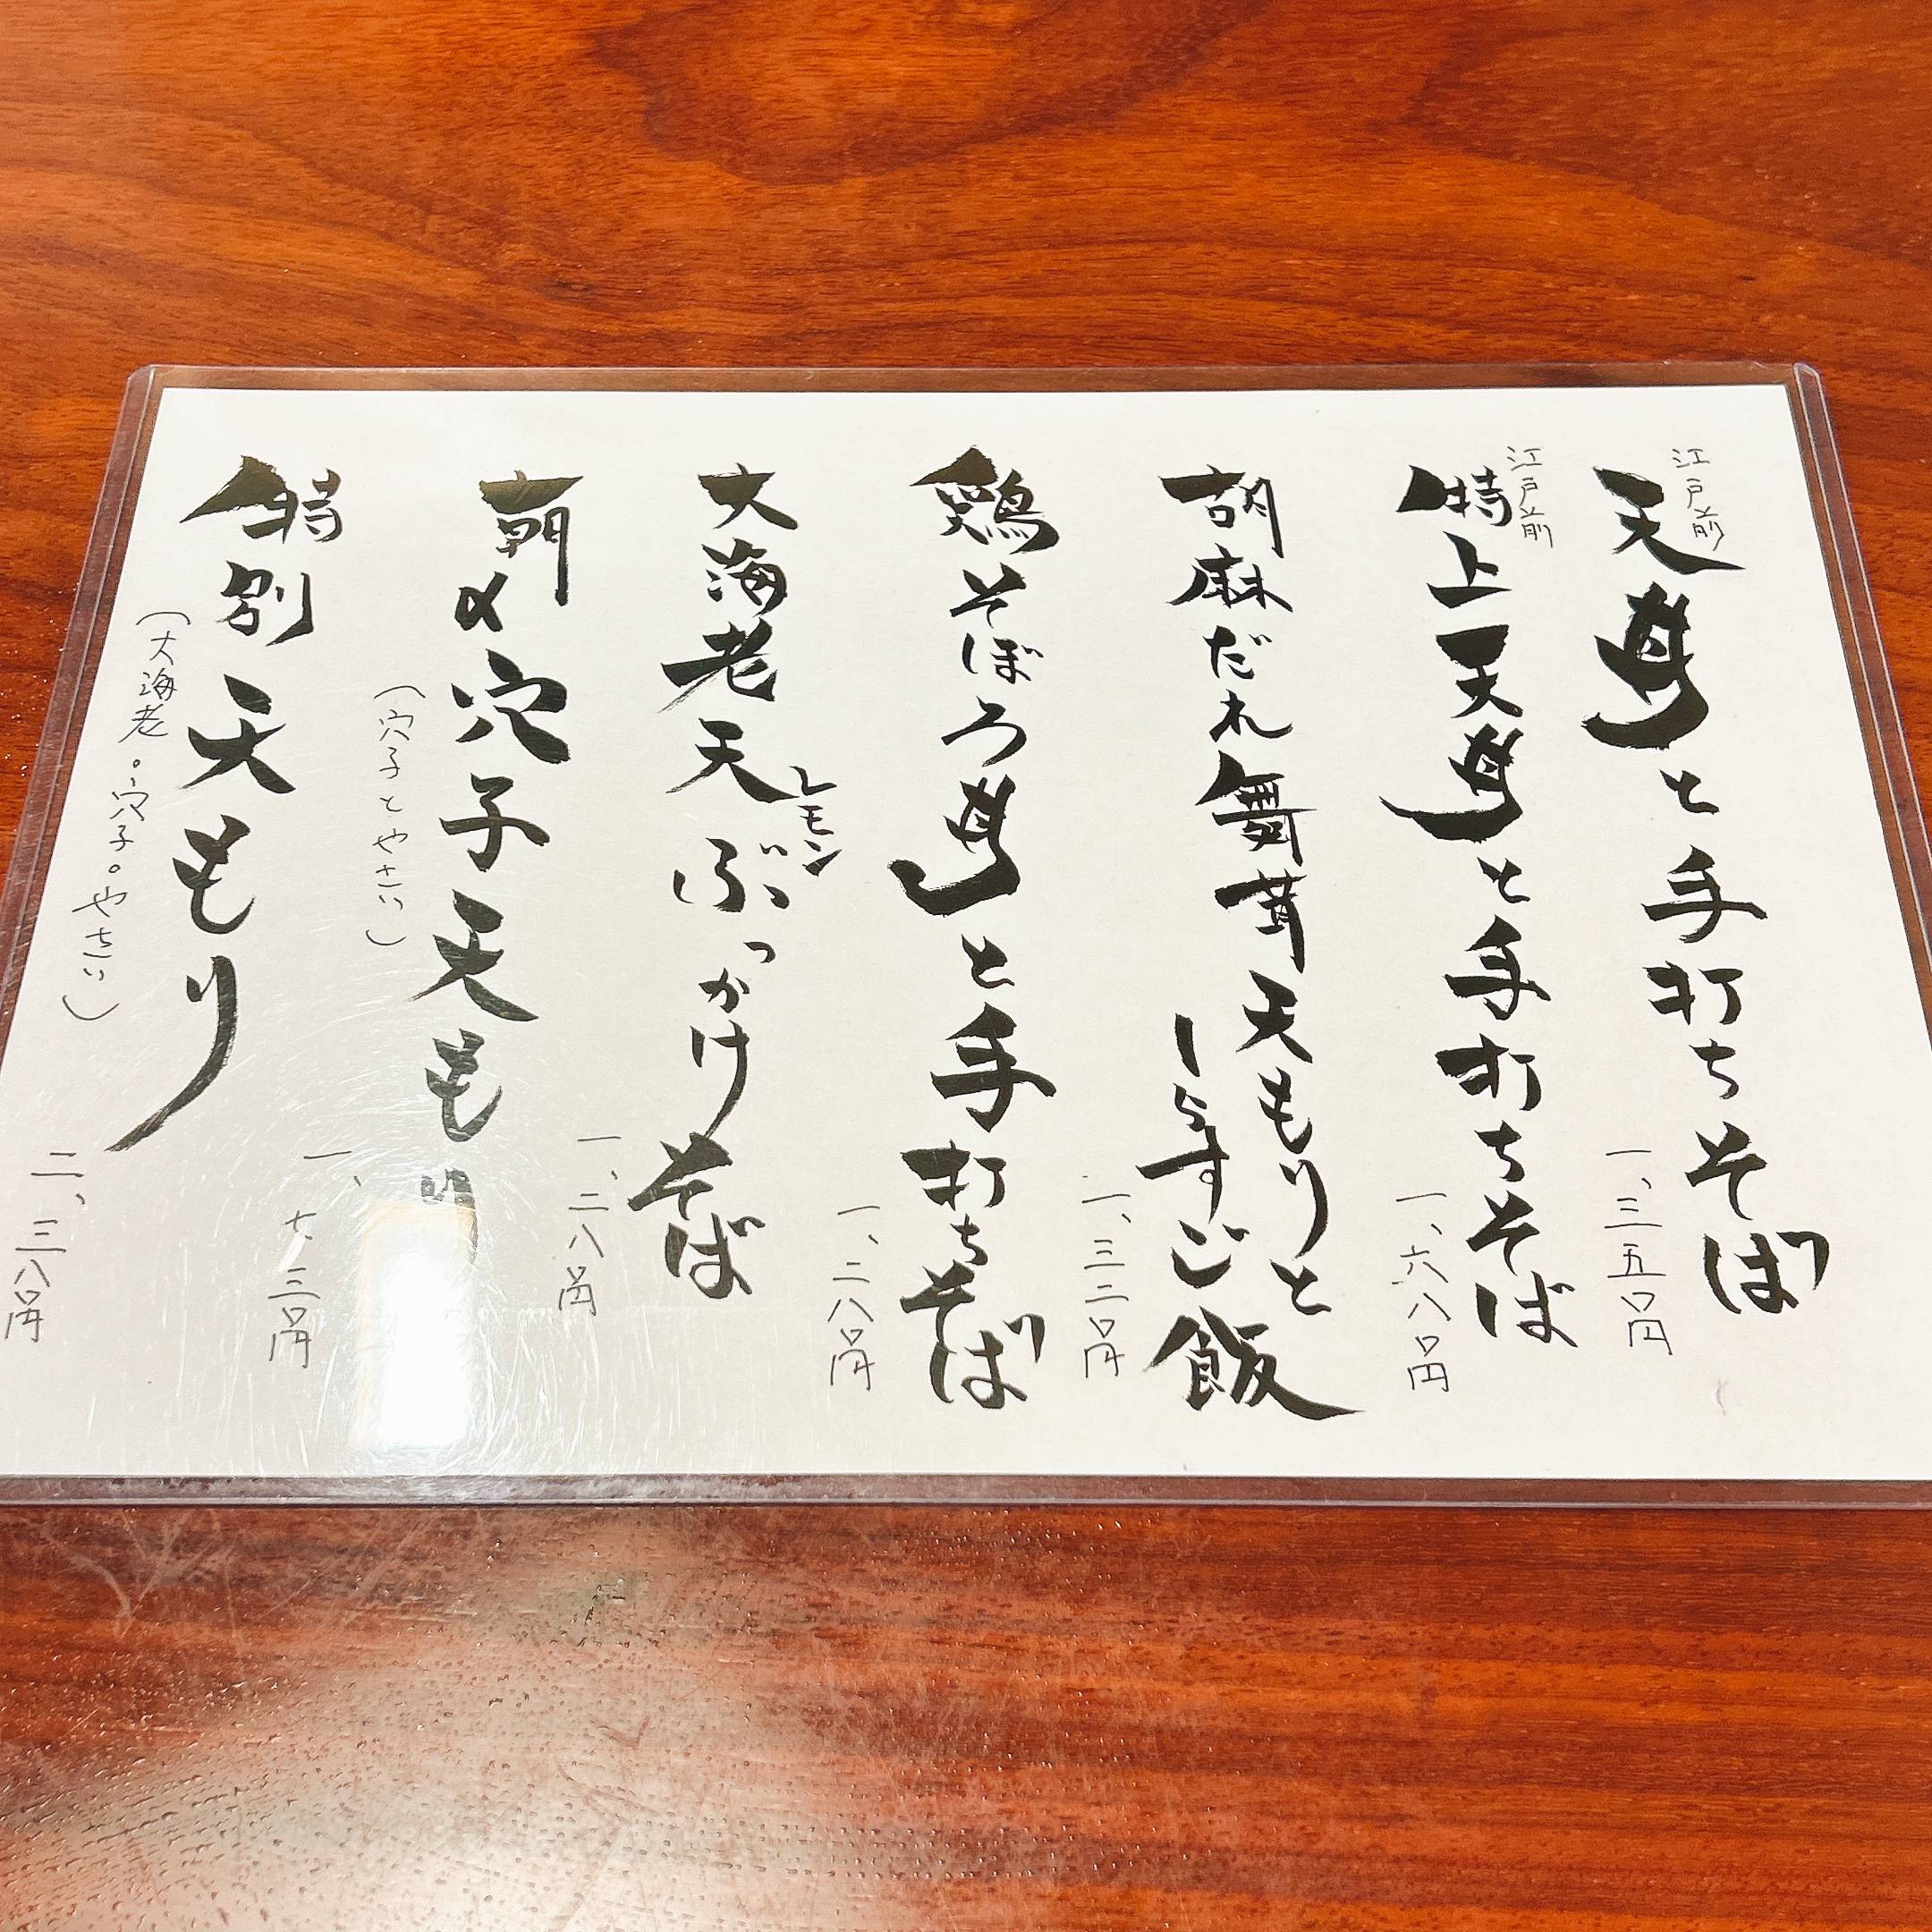 江戸前
天丼と手打ちそば
一、三五〇円
江戸前
特上天丼と手打ちそば
一、六八〇円
胡麻だれ舞茸天もりと
しらすご飯
一、三二〇円
鶏そぼろ丼と手打ちそば
一、二八〇円
レモン
大海老天ぶっかけそば
一、二八〇円
朝〆穴子天もり
(穴子とやさい)
一、七三〇円
特別天もり
(大海老。穴子。やさい)
二、三八〇円